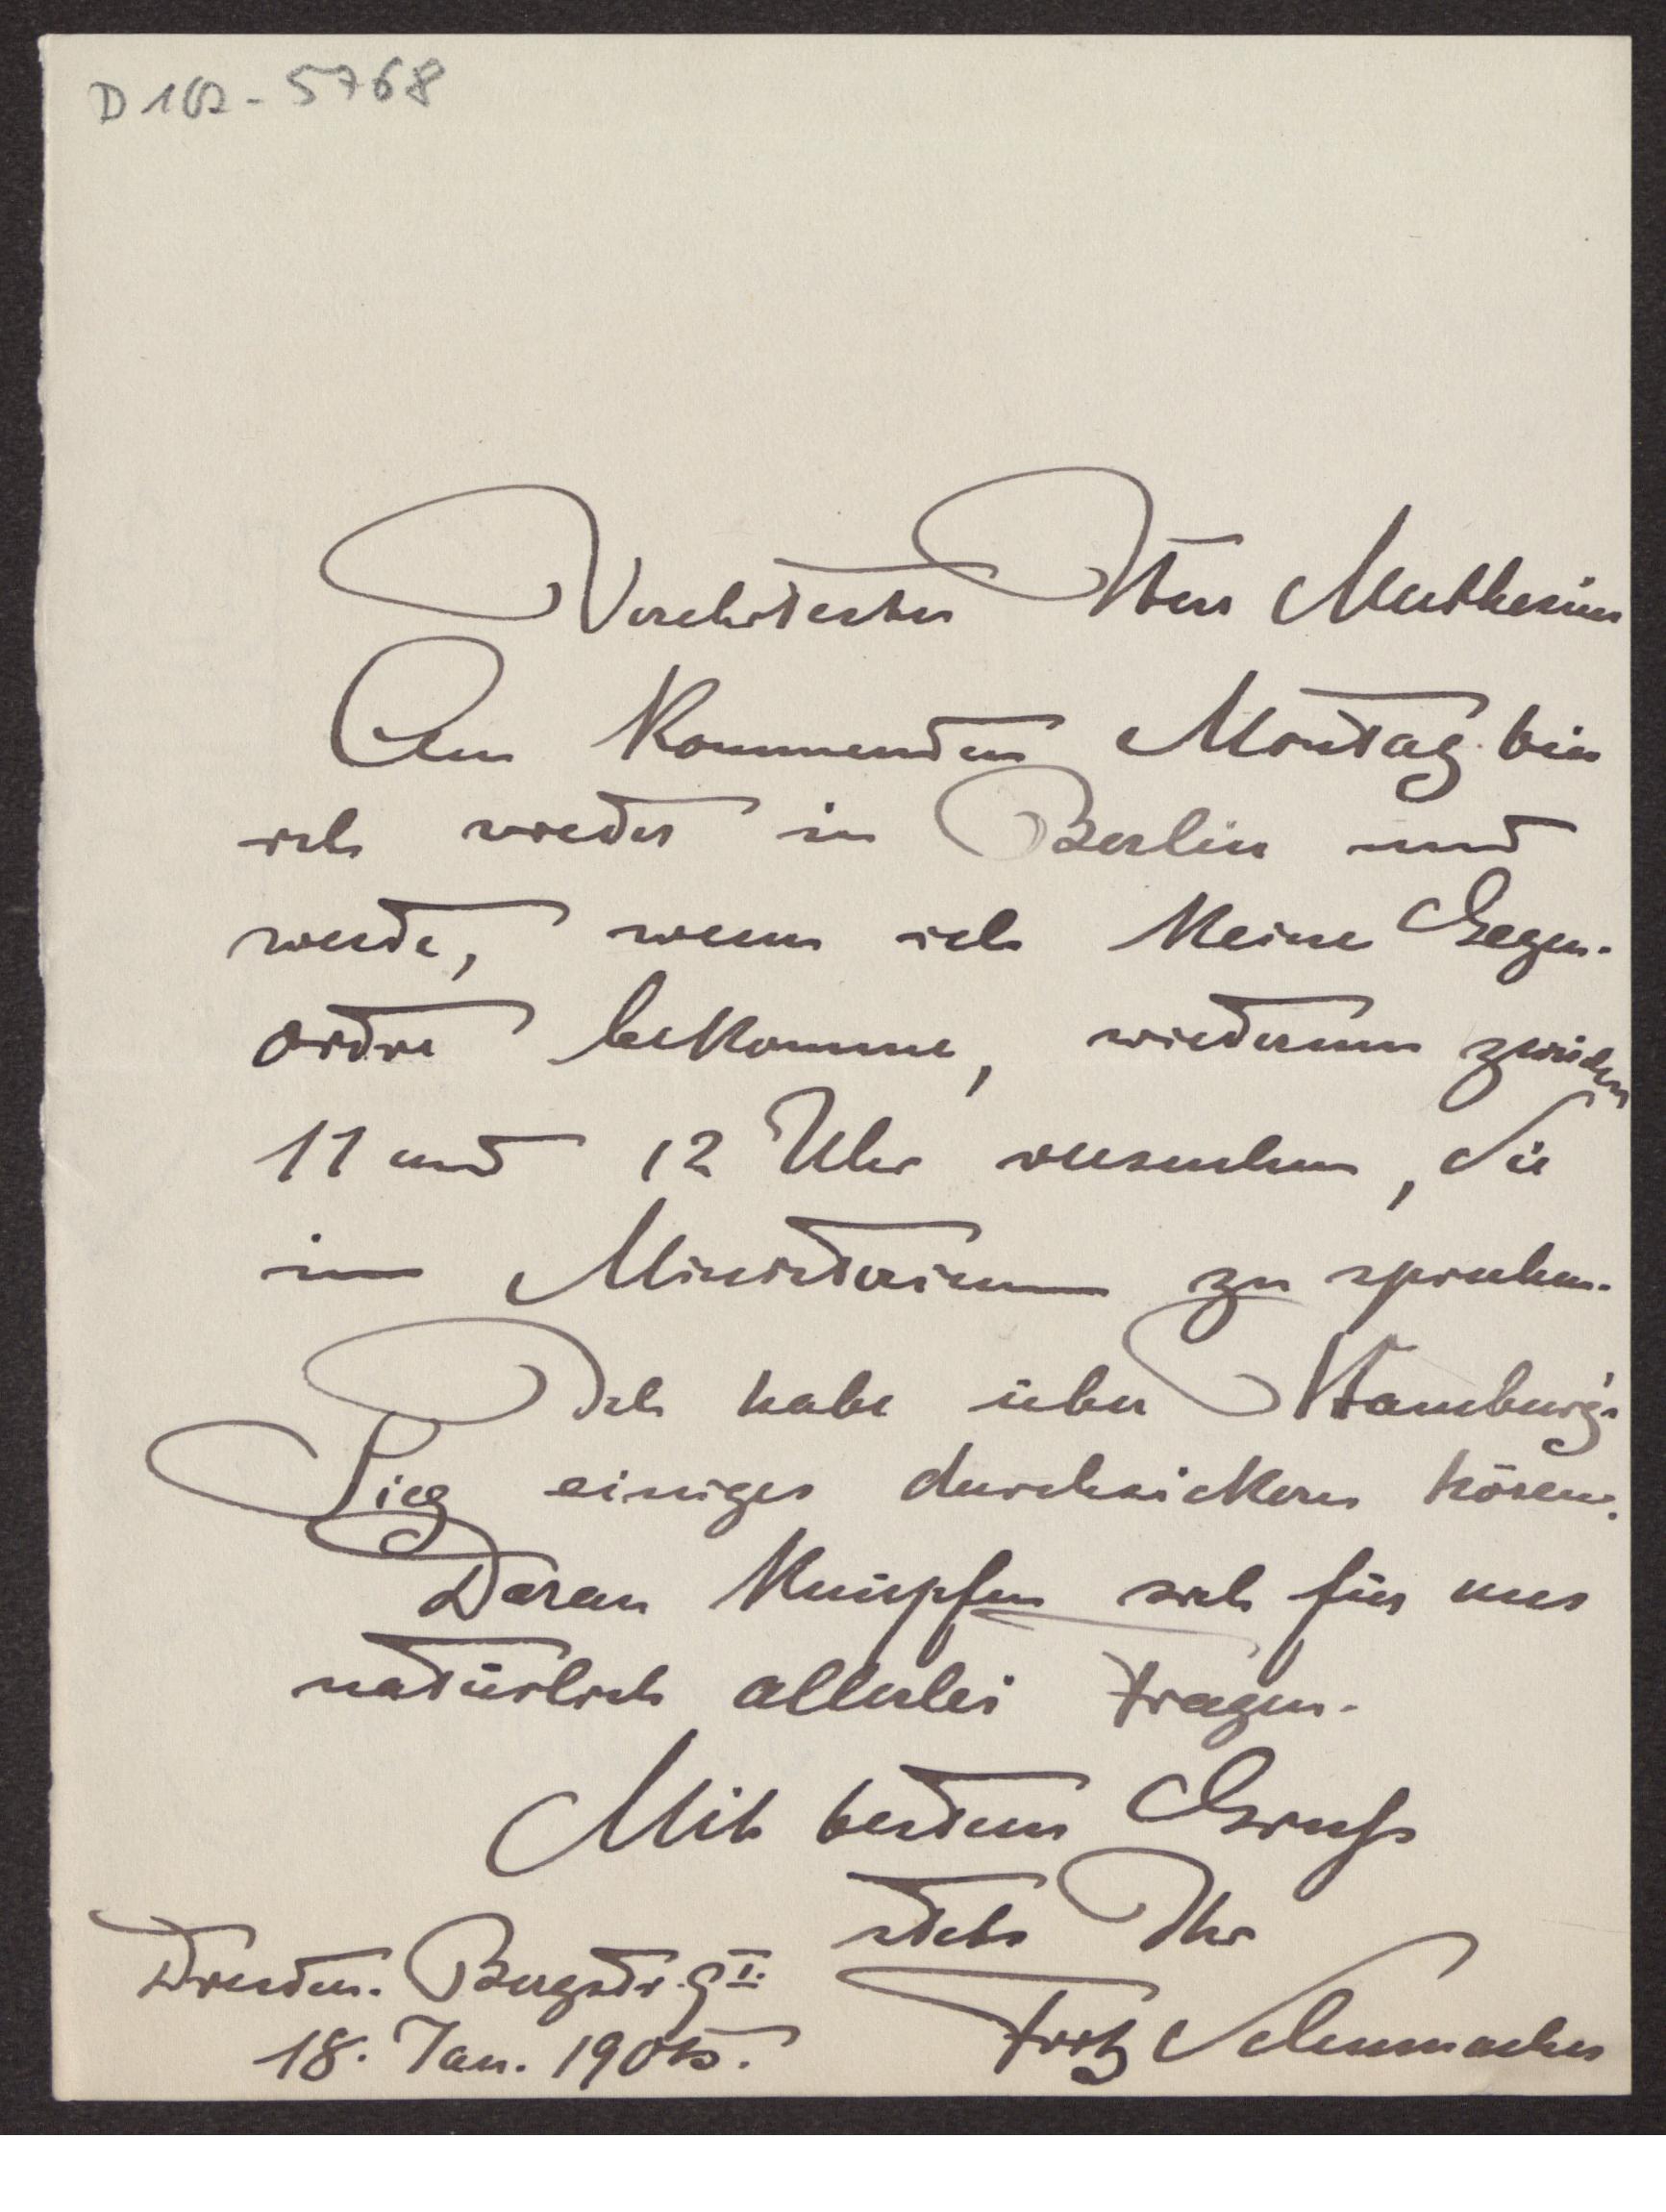 D 102-5768
Verehrtester Herr Muthesius
Am kommenden Montag bin
ich wieder in Berlin und
werde, wenn ich keine Gegen-
ordre bekomme, wiederum zwischen
11 und 12 Uhr versuchen, Sie
im Ministerium zu sprechen.
Ich habe über Hamburg's
Sieg einiges durchsickern hören.
Daran knüpfen sich für uns
natürlich allerlei Fragen.
Mit bestem Gruß
stets Ihr
Fritz Schumacher
Dresden. Bergstr. 9 II.
18. Jan.